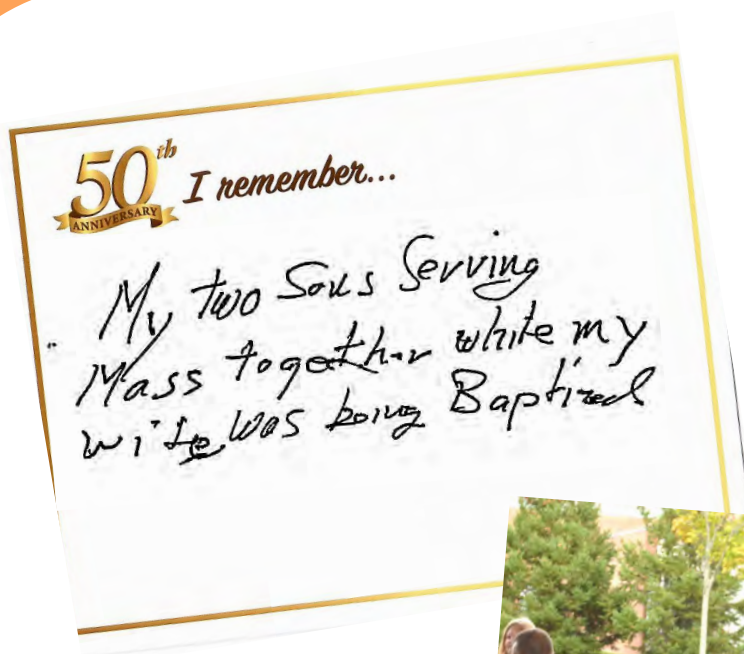 50th
ANNIVERSARY
I remember...
My two Sons Serving
Mass together while my
wife was being Baptized